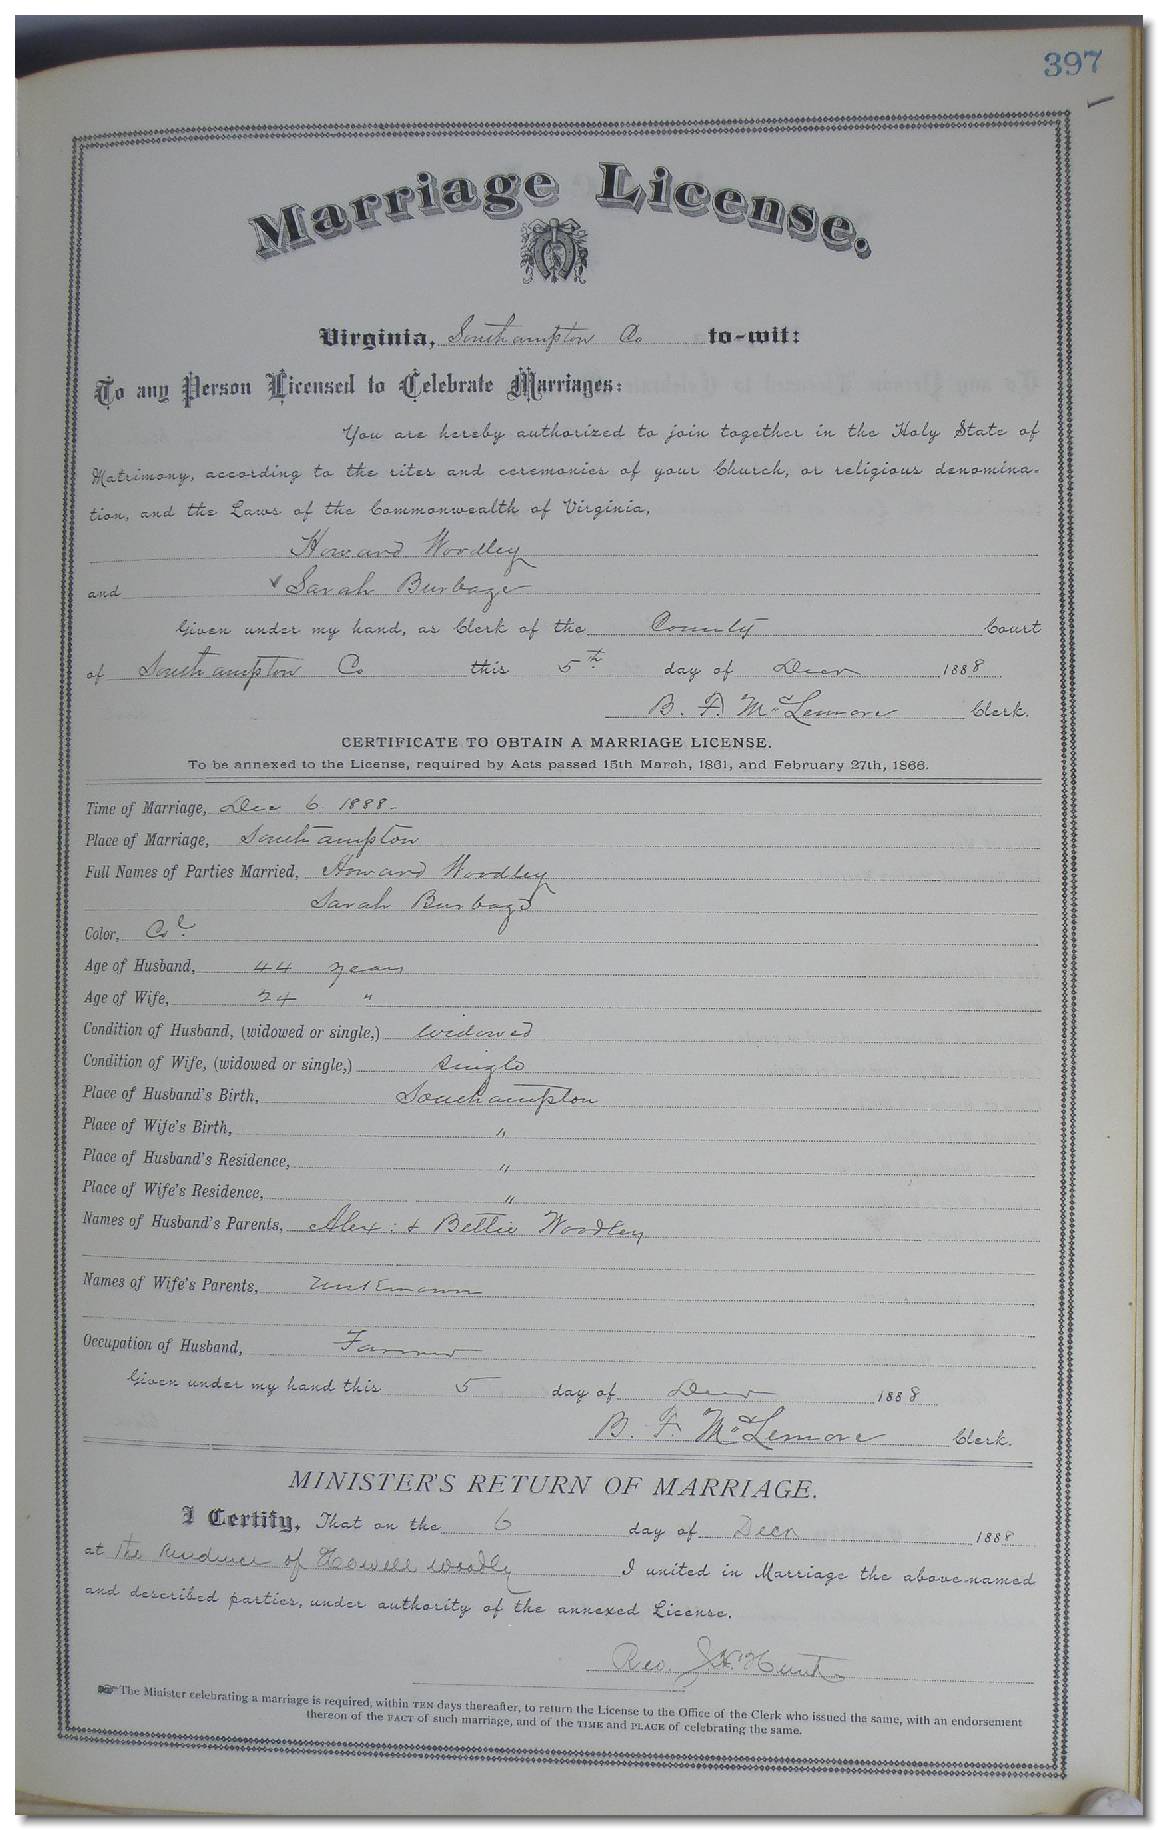 397
Marriage License.
Virginia, Southampton Co to-wit:
To any Person Licensed to Celebrate Marriages:
You are hereby authorized to join together in the Holy State of
Matrimony, according to the rites and ceremonies of your Church, or religious denomina-
tion, and the Laws of the Commonwealth of Virginia,
Howard Woodley
and Sarah Burbage
Given under my hand, as Clerk of the County Court
of Southampton Co this 5th day of Decr 1888
B. F. McLemore Clerk.
CERTIFICATE TO OBTAIN A MARRIAGE LICENSE.
To be annexed to the License, required by Acts passed 15th March, 1861, and February 27th, 1866.
Time of Marriage, Dec 6 1888-
Place of Marriage, Southampton
Full Names of Parties Married, Howard Woodley
Sarah Burbage
Color, Col
Age of Husband, 44 years
Age of Wife, 24 "
Condition of Husband, (widowed or single,) widowed
Condition of Wife, (widowed or single,) single
Place of Husband's Birth, Southampton
Place of Wife's Birth, "
Place of Husband's Residence, "
Place of Wife's Residence, "
Names of Husband's Parents, Alex: & Bettie Woodley
Names of Wife's Parents, Unknown
Occupation of Husband, Farmer
Given under my hand this 5 day of Decr 1888
B. F. McLemore Clerk.
MINISTER'S RETURN OF MARRIAGE.
I Certify, That on the 6 day of Decr 1888
at The Residence of Howell Woodly I united in Marriage the above-named
and described parties, under authority of the annexed License.
Rev. Hunt
The Minister celebrating a marriage is required, within TEN days thereafter, to return the License to the Office of the Clerk who issued the same, with an endorsement
thereon of the FACT of such marriage, and of the TIME and PLACE of celebrating the same.